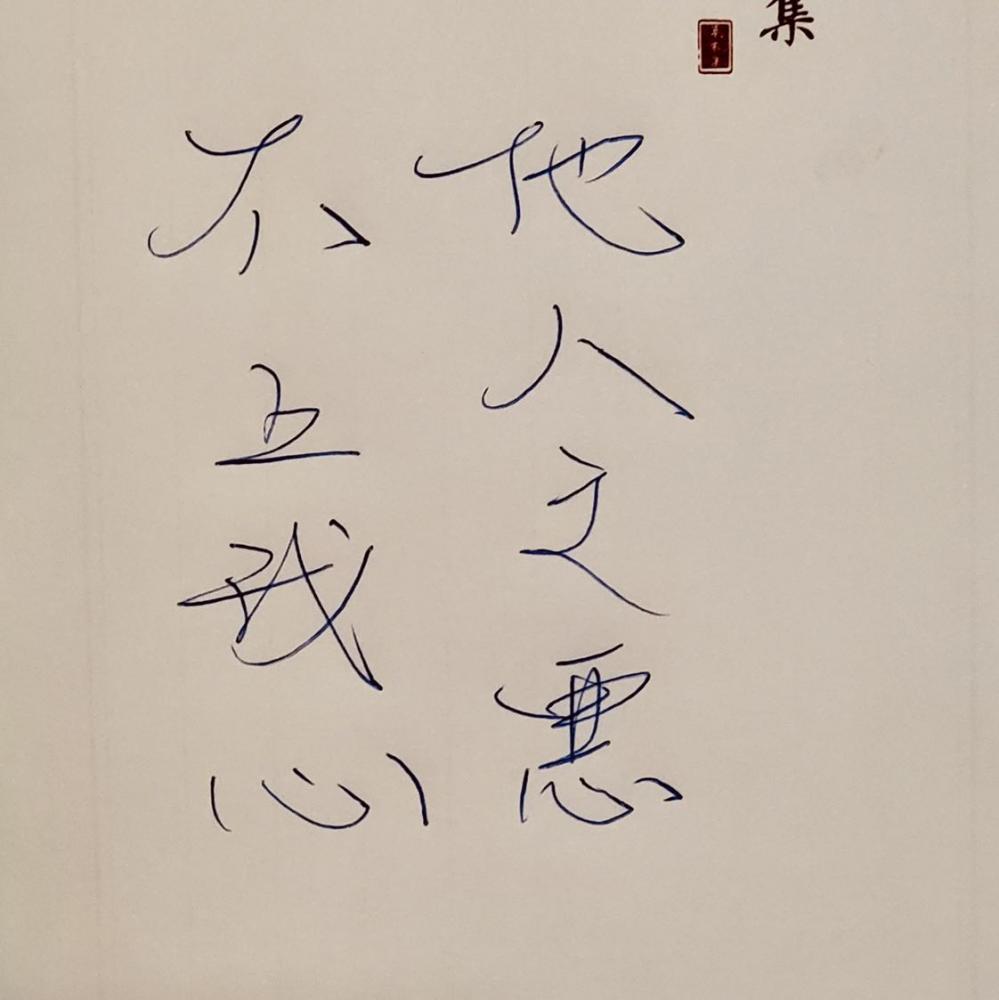 集
他人之惡
不立我心